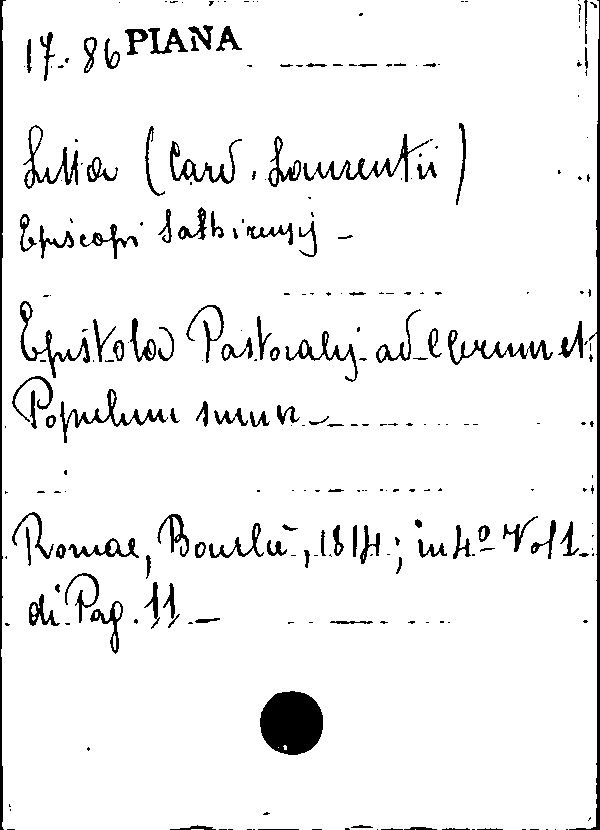 17.86 PIANA
Litta (Card. Laurentii)
Episcopi Sabinensis -
Epistola Pastoralis ad Clerum et
Populum suum -
Romae, Bourlié, 1814; in 4º Vol 1
di Pag. 11 -